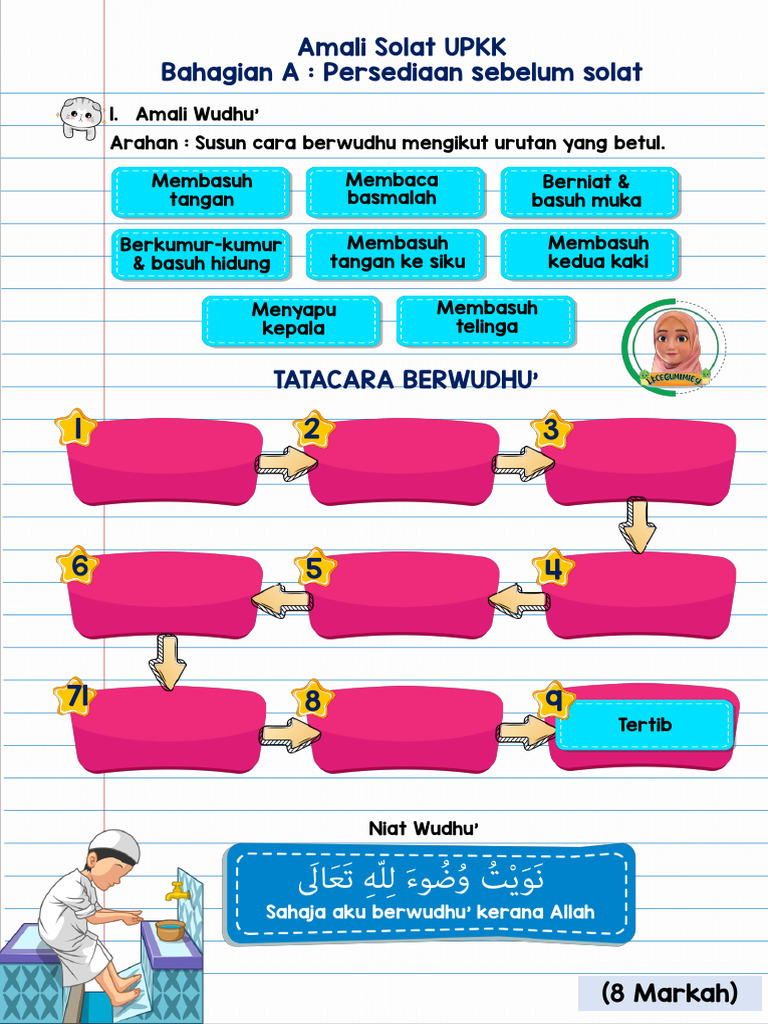 Amali Solat UPKK
Bahagian A : Persediaan sebelum solat
1. Amali Wudhu'
Arahan : Susun cara berwudhu mengikut urutan yang betul.
Membasuh
tangan
Membaca
basmalah
Berniat &
basuh muka
Berkumur-kumur
& basuh hidung
Membasuh
tangan ke siku
Membasuh
kedua kaki
Menyapu
kepala
Membasuh
telinga
TATACARA BERWUDHU'
1
2
3
6
5
4
71
8
9
Tertib
Niat Wudhu'
نَوَيْتُ وُضُوءَ لِلّهِ تَعَالَى
Sahaja aku berwudhu' kerana Allah
(8 Markah)